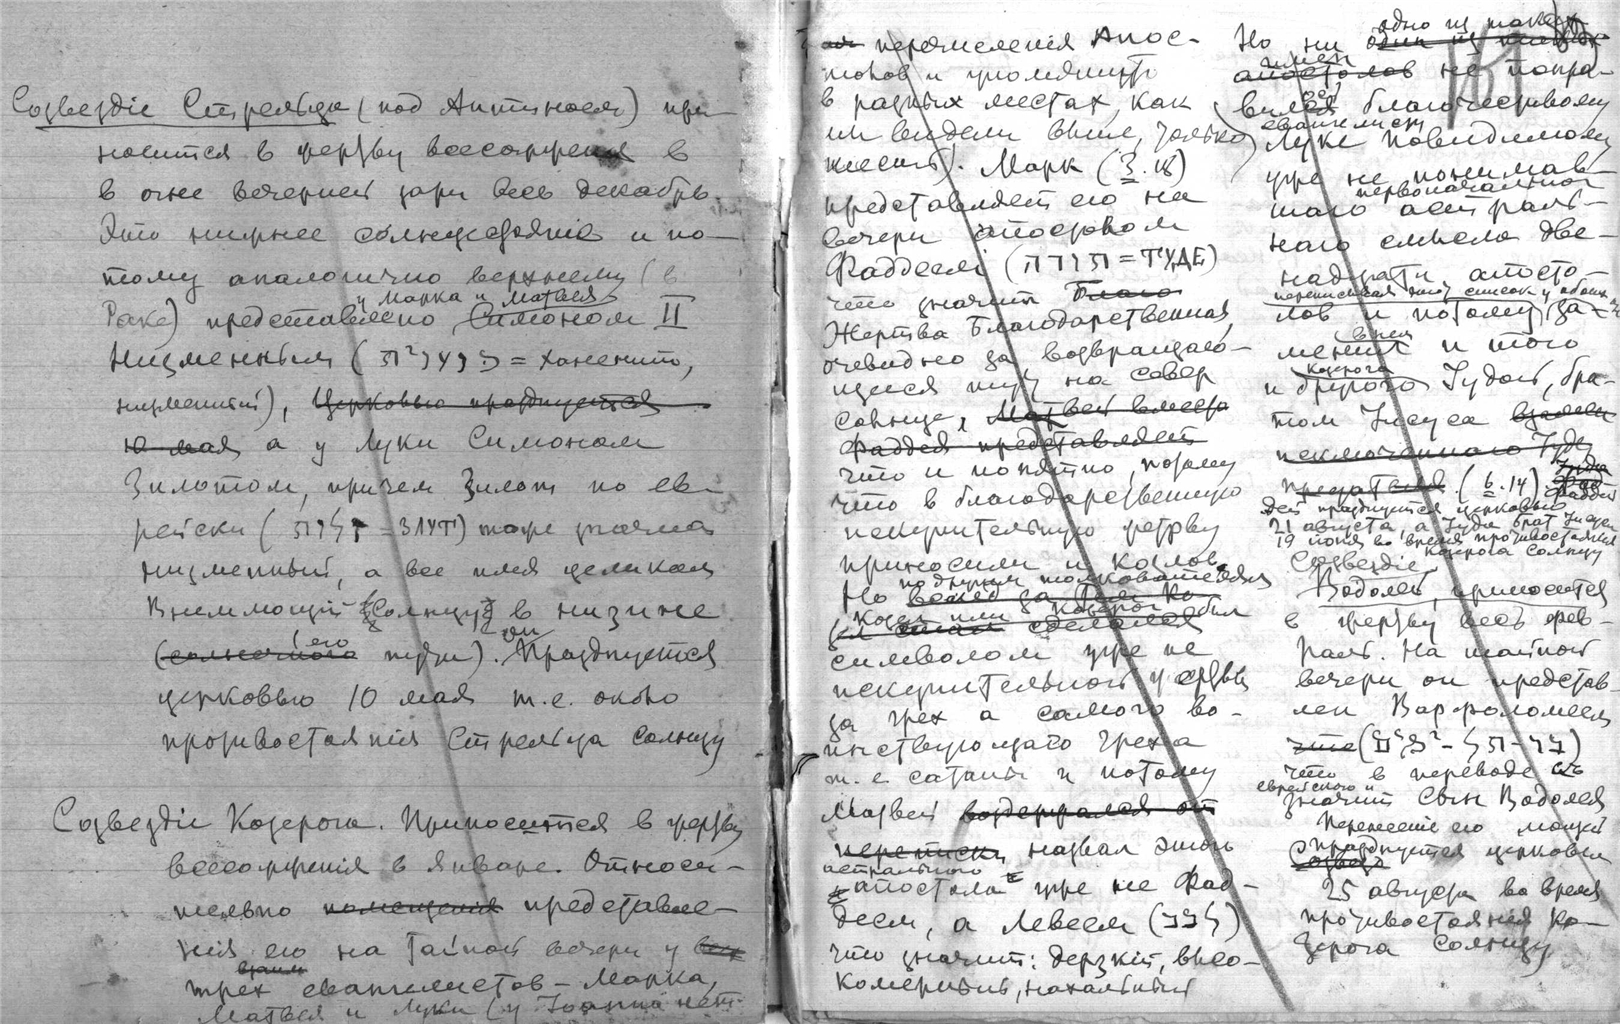 Созвездіе Стрельца (под Антиноем) при-
носится в жертву всесожжения в
в огне вечерней зари весь декабрь.
Это нижнее солнцестояніе и по-
тому аналогично верхнему (в
у Марка и Матвея
Раке) представлено Симоном II
Низменным ( = хаменит,
низменный), Церковью празднуется
10 мая а у Луки Симоном
Зилотом, причем Зилот по ев-
рейски ( = ЗЛУТ) тоже значит
низменный, а все имя целиком
Внимющій Солнцу в низине
его
(солнечного пути). он Празднуется
церковью 10 мая т.е. около
противостоянія Стрельца солнцу
Созвездіе Козерога. Приносится в жертву
всесожженія в Январе. Относи-
тельно помещенія представле-
нія его на Тайной вечери у всех
трех евангелистов – Марка,
Матвея и Луки (у Іоанна нет
перечисленія Апос-
толов и упомянуто
в разных местах, как
мы видели выше, только
шесть). Марк (3.18)
представляет его на
вечери апостолом
Фаддеем ( = ТУДЕ)
что значит Благо
Жертва Благодарственная,
очевидно за возвращаю-
щееся тут на север
солнце, Матвей вместо
Фаддея представляет
что и понятно, потому
что в благодарственную
искупительную жертву
приносили и козлов.
по другим толкователям
Но
Козел или Козерог был
сделался
символом уже не
искупительной жертвы
за грех а самого во-
инствующаго греха
т.е. сатаны и потому
Матвей воздержался от
переписки назвал этого
астрального
апостола уже не Фад-
деем, а Левеем ()
что значит: дерзкій, высо-
комерный, нахальный
одно из таких
Но ни один из
имен
апостолов не понра-
вилось благочестивому
евангелисту
Луке повидимому
уже не понимав-
первоначального
шаго астраль-
наго смысла две-
надцати апосто-
переписывая этот список
лов и потому за-
менил и того
Козерога
и другого Іудой, бра-
том Іисуса взамен
исключенного Іуды
предателя (6.14)
дей празднуется церковью
21 августа, а Іуда брат Іисуса
19 іюня во время противостоянія
Козерога Солнцу
Созвездіе
Водолей, приносится
в жертву весь фев-
раль. На тайной
вечери он представ-
лен Варфоломеем
что ()
что в переводе съ
еврейского и
значит Сын Водолея
Перенесеніе его мощей
празднуется церковью
25 августа во время
противостоянія Ко-
зерога Солнцу